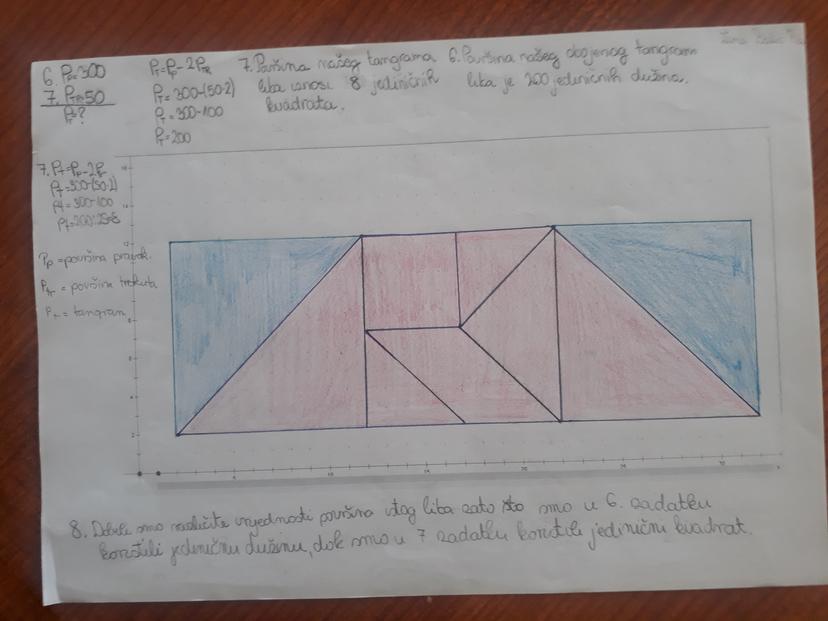 6. Pp=300
7. Ptr=50
Pt=?
Pt=Pp-2Ptr
Pt=300-(50·2)
Pt=300-100
Pt=200
7. Površina našeg tangrama
lika iznosi 8 jediničnih
kvadrata.
6. Površina našeg obojenog tangram
lika je 200 jediničnih dužina.
7. Pt=Pp-2P
Pt=300-(50·2)
Pt=300-100
Pt=200:25=8
Pp =površina pravok.
Ptr = površina trokuta
Pt = tangram
8. Dobili smo različite vrijednosti površina istog lika zato što smo u 6. zadatku
koristili jediničnu dužinu, dok smo u 7 zadatku koristili jedinični kvadrat.